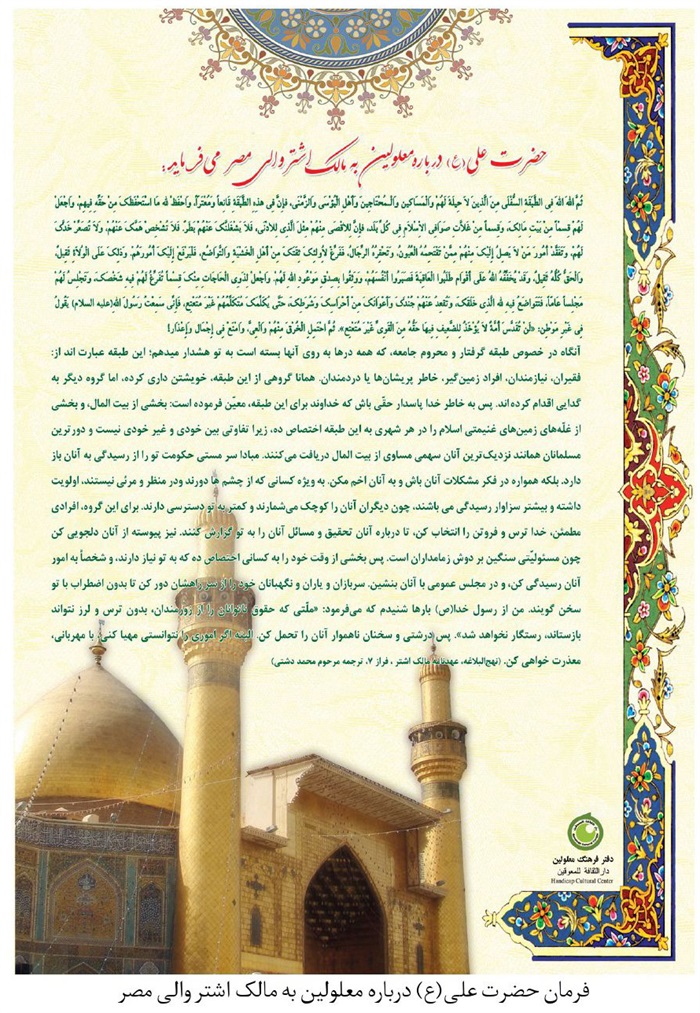 حضرت علی (ع) درباره معلولین به مالک اشتر والی مصر می‌فرماید:
ثُمَّ اللهَ اللهَ فِی الطَّبَقَةِ السُّفْلَی مِنَ الَّذِینَ لَا حِیلَةَ لَهُمْ وَالْمَسَاکِینِ وَالْمُحْتَاجِینَ وَأَهْلِ الْبُؤْسَی وَالزَّمْنَی، فَإِنَّ فِی هذِهِ الطَّبَقَةِ قَانِعاً وَمُعْتَرّاً، وَاحْفَظْ للهِ مَا اسْتَحْفَظَکَ مِنْ حَقِّهِ فِیهِمْ، وَاجْعَلْ
لَهُمْ قِسْماً مِنْ بَیْتِ مَالِکَ، وَقِسماً مِنْ غَلَّاتِ صَوَافِی الْاسْلَامِ فِی کُلِّ بَلَد، فإِنَّ لِلاَْقْصَی مِنْهُمْ مِثْلَ الَّذِی لِلاَْدْنَی، فَلَا یَشْغَلَنَّکَ عَنْهُمْ بَطَرٌ، فَلَا تُشْخِصْ هَمَّکَ عَنْهُمْ، وَلَا تُصَعِّرْ خَدَّکَ
لَهُمْ، وَتَفَقَّدْ أُمُورَ مَنْ لَا یَصِلُ إِلَیْکَ مِنْهُمْ مِمَّنْ تَقْتَحِمُهُ الْعُیُونُ، وَتَحْقِرُهُ الرِّجَالُ، فَفَرِّغْ لِأُولئِکَ ثِقَتَکَ مِنْ أَهْلِ الْخَشْیَةِ وَالتَّوَاضُعِ، فَلْیَرْفَعْ إِلَیْکَ أُمُورَهُمْ، وَذلِکَ عَلَی الْوُلَاةِ ثَقِیلٌ،
وَالْحَقُّ کُلُّهُ ثَقِیلٌ، وَقَدْ یُخَفِّفُهُ اللهُ عَلَی أَقْوَام طَلَبُوا الْعَافِیَةَ فَصَبَرُوا أَنْفُسَهُمْ، وَوَثِقُوا بِصِدْقِ مَوْعُودِ اللهِ لَهُمْ. وَاجْعَلْ لِذَوِی الْحَاجَاتِ مِنْکَ قِسْماً تُفَرِّغُ لَهُمْ فِیهِ شَخْصَکَ، وَتَجْلِسُ لَهُمْ
مَجْلِساً عَامّاً، فَتَتَوَاضَعُ فِیهِ للهِ الَّذِی خَلَقَکَ، وَتُقْعِدُ عَنْهُمْ جُنْدَکَ وَأَعْوَانَکَ مِنْ أَحْرَاسِکَ وَشُرَطِکَ، حَتَّی یُکَلِّمَکَ مُتَکَلِّمُهُمْ غَیْرَ مُتَتَعْتِع، فَإِنِّی سَمِعْتُ رَسُولَ اللهِ(علیه السلام) یَقُولُ
فِی غَیْرِ مَوْطِن: «لَنْ تُقَدَّسَ أُمَّةٌ لَا یُؤْخَذُ لِلضَّعِیفِ فِیهَا حَقُّهُ مِنَ الْقَوِیِّ غَیْرَ مُتَتَعْتِع». ثُمَّ احْتَمِلِ الْخُرْقَ مِنْهُمْ وَالْعِیَّ، وَامْنَعْ فِی إِجْمَال وَإِعْذَار!
آنگاه در خصوص طبقه گرفتار و محروم جامعه، که همه درها به روی آنها بسته است به تو هشدار میدهم؛ این طبقه عبارت اند از:
فقیران، نیازمندان، افراد زمین‌گیر، خاطر پریشان‌ها یا دردمندان. همانا گروهی از این طبقه، خویشتن داری کرده، اما گروه دیگر به
گدایی اقدام کرده‌اند. پس به خاطر خدا پاسدار حقّی باش که خداوند برای این طبقه، معیّن فرموده است: بخشی از بیت المال، و بخشی
از غلّه‌های زمین‌های غنیمتی اسلام را در هر شهری به این طبقه اختصاص ده، زیرا تفاوتی بین خودی و غیر خودی نیست و دورترین
مسلمانان همانند نزدیک‌ترین آنان سهمی مساوی از بیت المال دریافت می‌کنند. مبادا سر مستی حکومت تو را از رسیدگی به آنان باز
دارد. بلکه همواره در فکر مشکلات آنان باش و به آنان اخم مکن. به ویژه کسانی که از چشم ها دورند ودر منظر و مرئی نیستند، اولویت
داشته و بیشتر سزاوار رسیدگی می باشند، چون دیگران آنان را کوچک می‌شمارند و کمتر به تو دسترسی دارند. برای این گروه، افرادی
مطمئن، خدا ترس و فروتن را انتخاب کن، تا درباره آنان تحقیق و مسائل آنان را به تو گزارش کنند. نیز پیوسته از آنان دلجویی کن
چون مسئولیّتی سنگین بر دوش زمامداران است. پس بخشی از وقت خود را به کسانی اختصاص ده که به تو نیاز دارند، و شخصاً به امور
آنان رسیدگی کن، و در مجلس عمومی با آنان بنشین. سربازان و یاران و نگهبانان خود را از سر راهشان دور کن تا بدون اضطراب با تو
سخن گویند. من از رسول خدا(ص) بارها شنیدم که می‌فرمود: «ملّتی که حقوق ناتوانان را از زورمندان، بدون ترس و لرز نتواند
بازستاند، رستگار نخواهد شد». پس درشتی و سخنان ناهموار آنان را تحمل کن. البته اگر اموری را نتوانستی مهیا کنی، با مهربانی،
معذرت خواهی کن. (نهج‌البلاغه، عهدنامه مالک اشتر ، فراز ۷، ترجمه مرحوم محمد دشتی)
دفتر فرهنگ معلولین
دار الثقافة للمعوقین
Handicap Cultural Center
فرمان حضرت علی(ع) درباره معلولین به مالک اشتر والی مصر